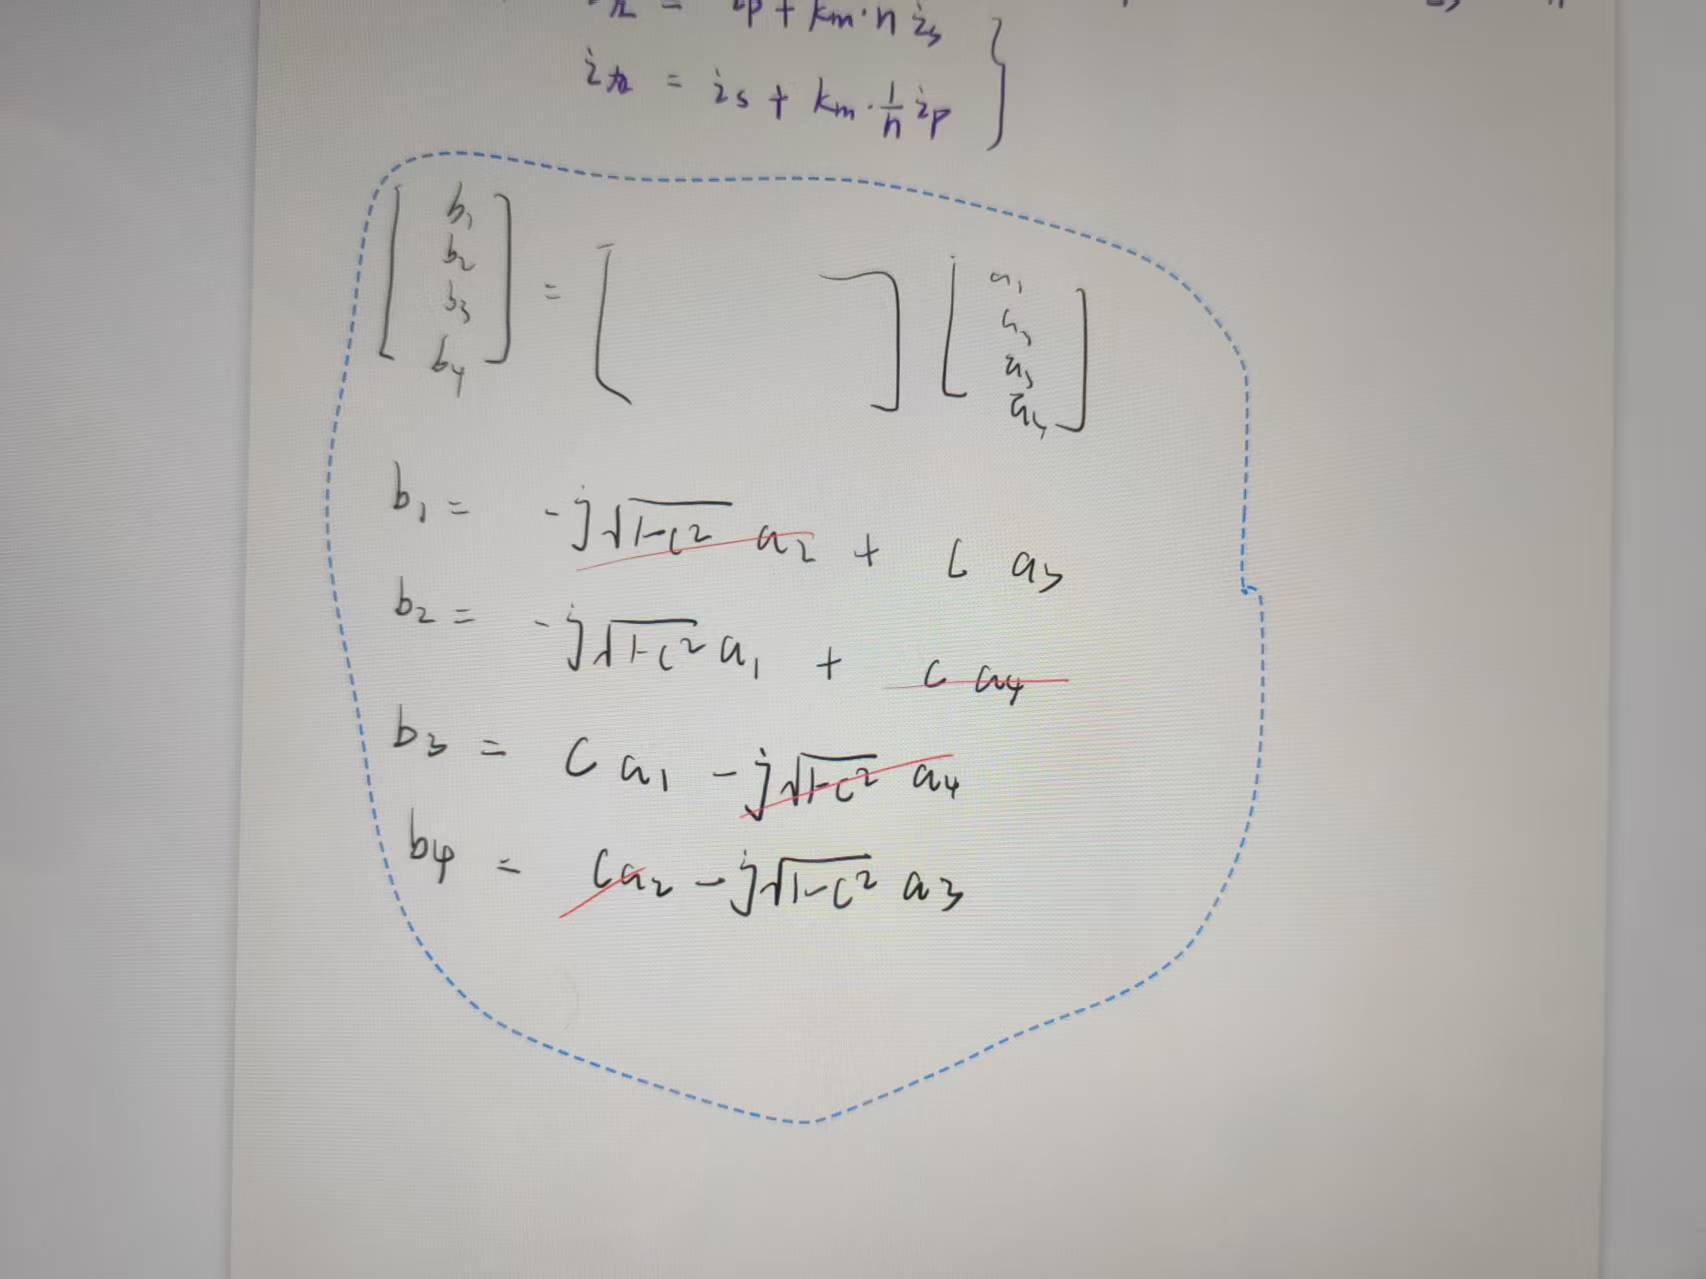 = ip + km·n is
= is + km·1/n ip
[b1 b2 b3 b4] = [ ] [a1 a2 a3 a4]
b1 = -j√(1-c²) a2 + c a3
b2 = -j√(1-c²) a1 + c a4
b3 = c a1 - j√(1-c²) a4
b4 = c a2 - j√(1-c²) a3